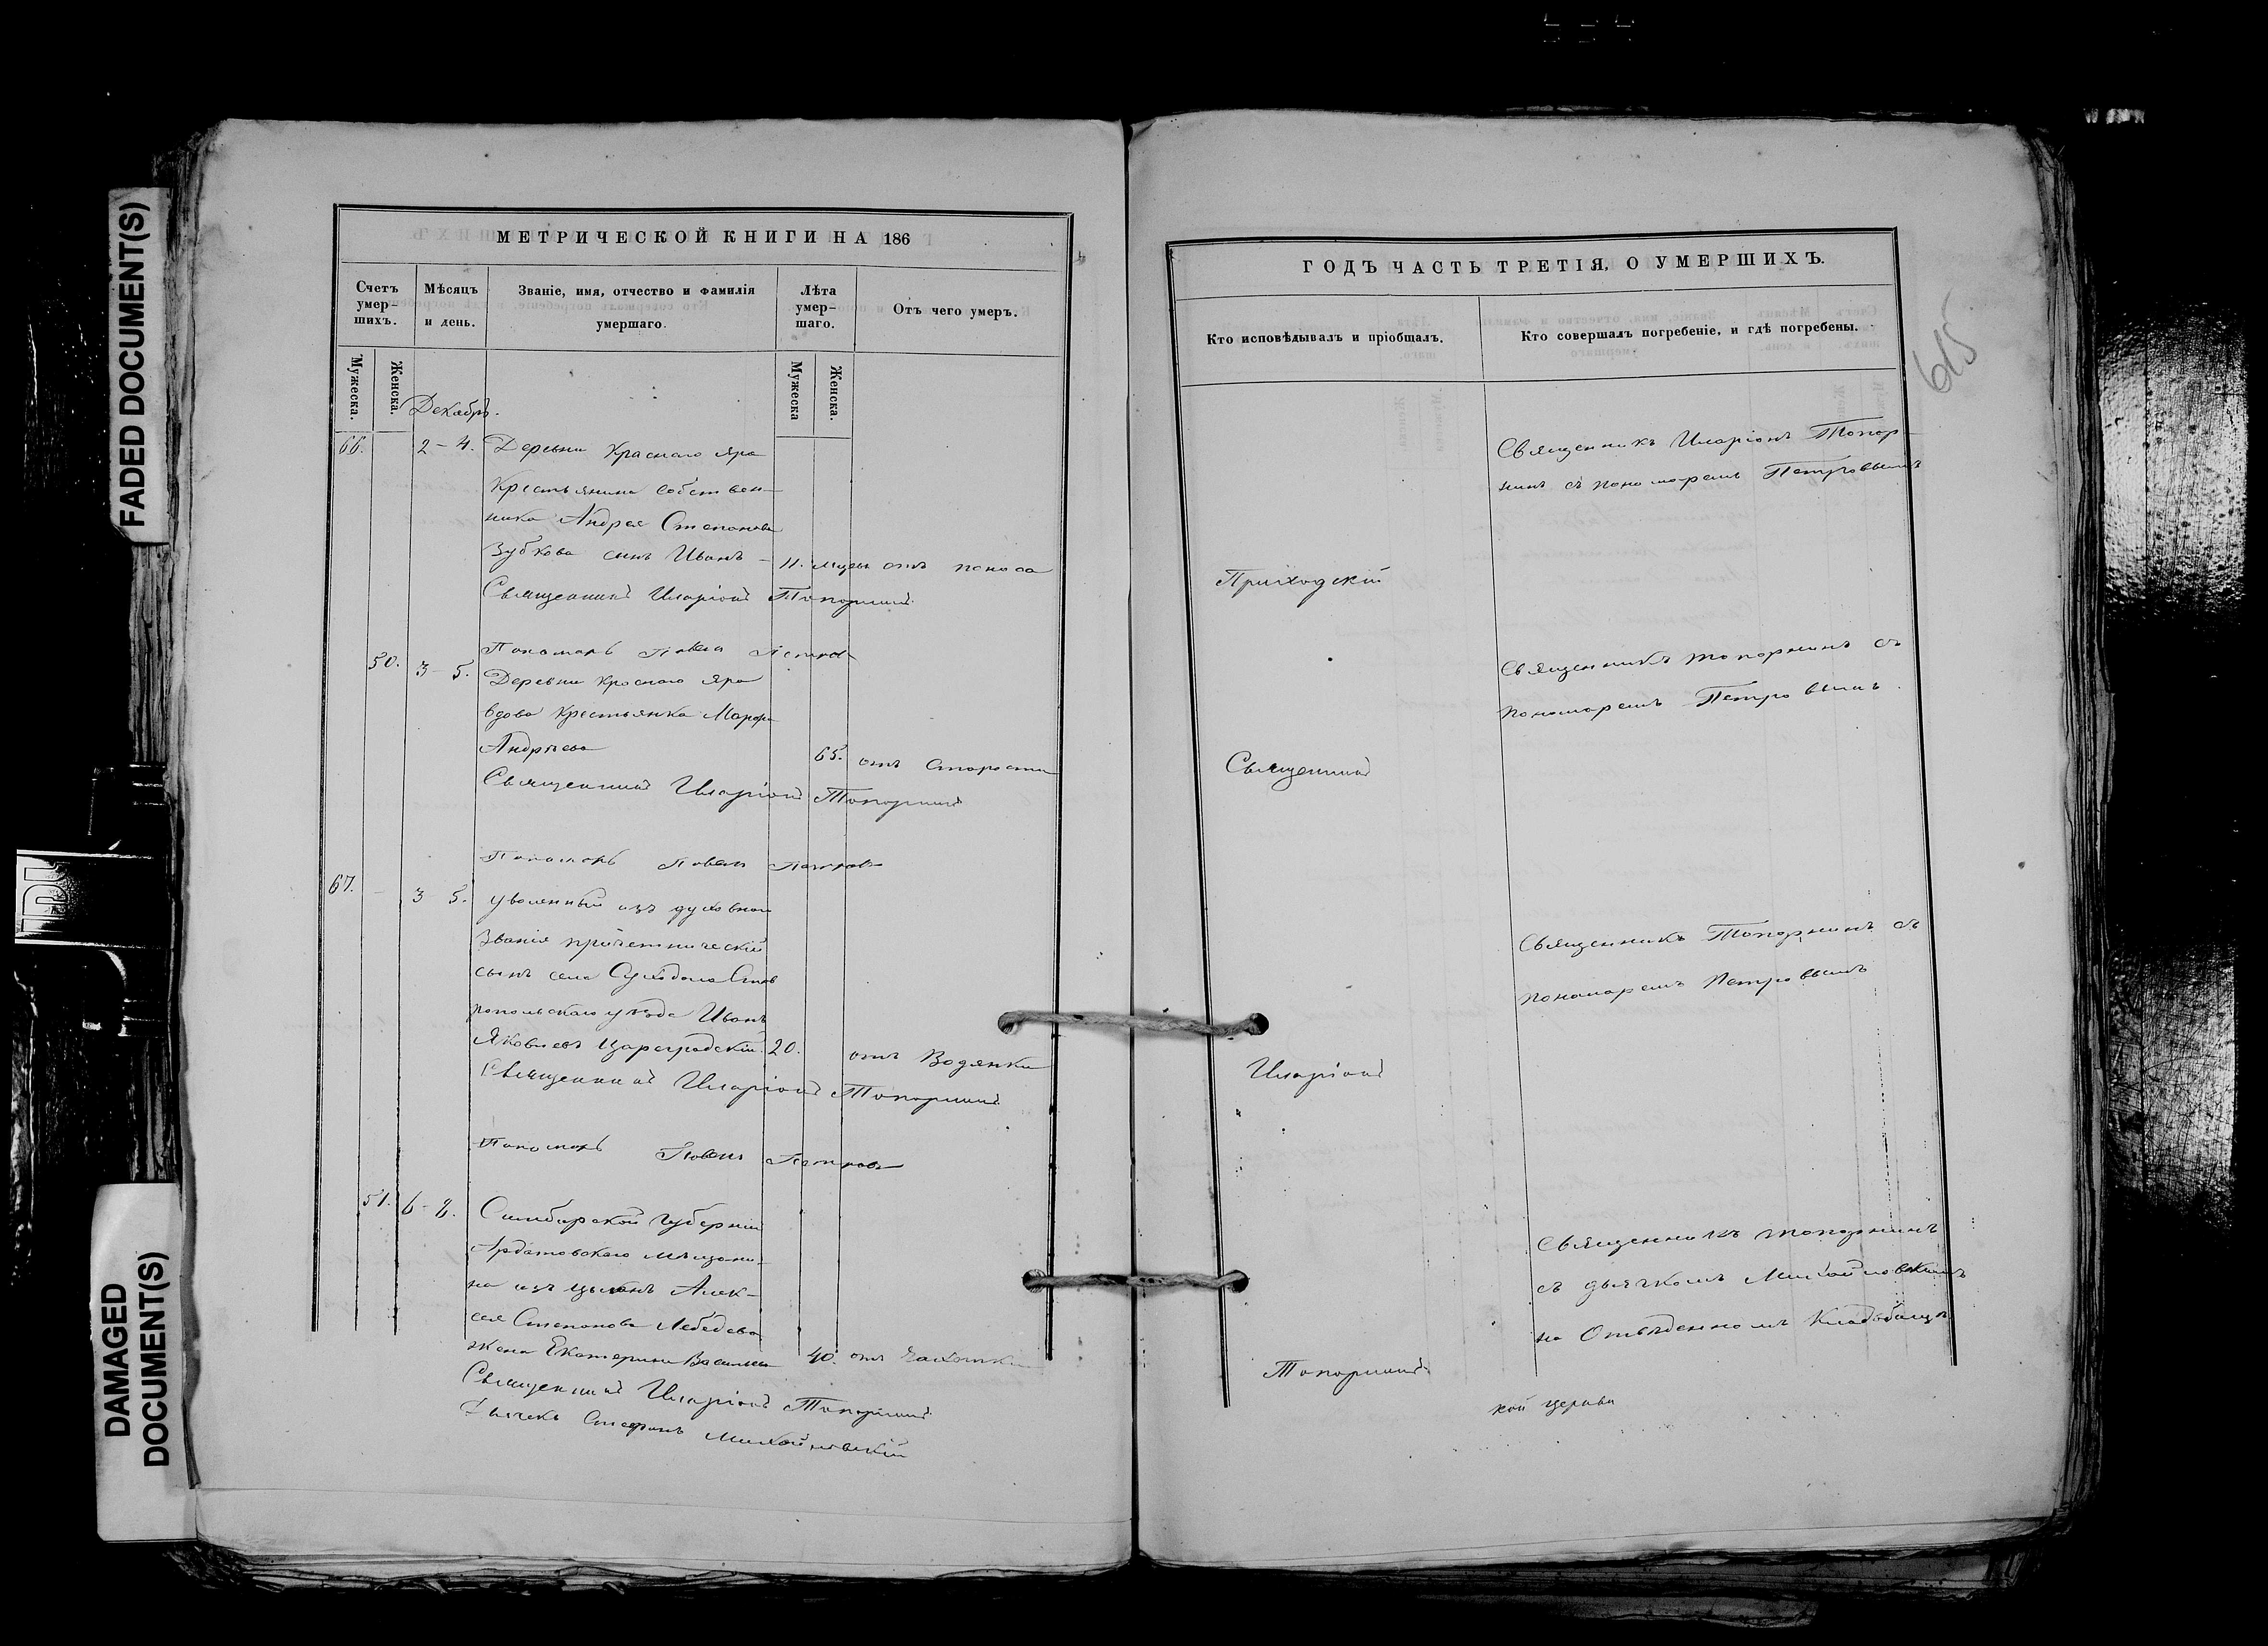 FADED DOCUMENT(S)
DAMAGED
DOCUMENT(S)
МЕТРИЧЕСКОЙ КНИГИ НА 186
Счетъ
умер-
шихъ.
Мѣсяцъ
и день.
Званіе, имя, отчество и фамилія
умершаго.
Лѣта
умер-
шаго.
Отъ чего умеръ.
Мужеска.
Женска.
Мужеска
Женска.
Декабрь.
66. 2-4. Деревни Краснаго Яра
Крестьянина собствен-
ника Андрея Степанова
Зубкова сынъ Иванъ - 11. отъ поноса
Священникъ Иларіонъ Топорнинъ
Пономарь Павелъ Петровъ
50. 3-5. Деревни Краснаго Яра
вдова крестьянка Марфа
Андреева 65. отъ старости
Священникъ Иларіонъ Топорнинъ
Пономарь Павелъ Петровъ
67. - 3 5. уволенный изъ духовнаго
званія причетническій
сынъ села Суходола Став
ропольскаго уѣзда Иванъ
Яковлевъ Цареградскій 20. отъ Водянки
Священникъ Иларіонъ Топорнинъ
Пономарь Павелъ Петровъ
51. 6-8. Симбирской Губерніи
Ардатовскаго мѣщани-
на изъ цыганъ Алек-
сея Степанова Лебедева
жена Екатерина Васильева 40. отъ Чахотки
Священникъ Иларіонъ Топорнинъ
Дьячекъ Стефанъ Михайловскій
ГОДЪ ЧАСТЬ ТРЕТІЯ, О УМЕРШИХЪ.
615
Кто исповѣдывалъ и пріобщалъ.
Кто совершалъ погребеніе, и гдѣ погребены.
Священникъ Иларіонъ Топор-
нинъ съ пономаремъ Петровымъ
Приходскій
Священникъ Топорнинъ съ
пономаремъ Петровымъ.
Священникъ
Священникъ Топорнинъ съ
пономаремъ Петровымъ
Иларіонъ
Священникъ Топорнинъ
съ дьячкомъ Михайловскимъ
на Отведенномъ Кладбищѣ
Топорнинъ
кой церкви